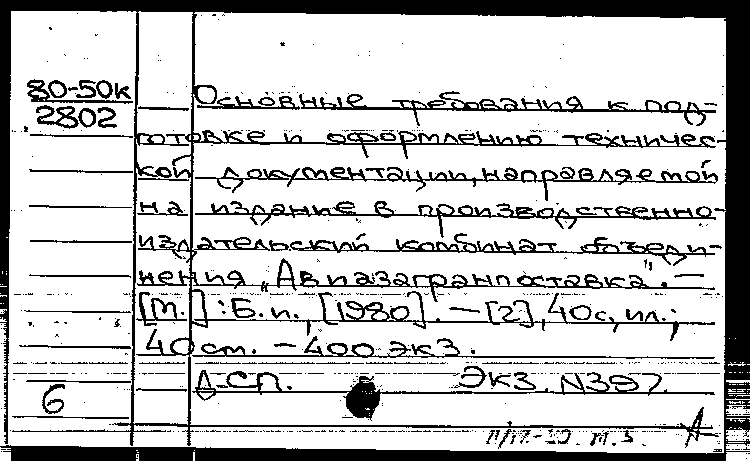 80-50к
2802
Основные требования к под-
готовке и оформлению техничес-
кой документации, направляемой
на издание в производственно-
издательский комбинат объеди-
нения „Авиазагранпоставка". —
[М.] : Б. и., [1980]. — [2], 40 с, ил.;
40 ст. — 400 экз.
Д-СП. Экз. N397.
6